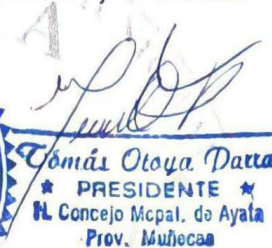 Tomás Otoya Darra
★ PRESIDENTE ★
H. Concejo Mcpal. de Ayata
Prov. Muñecas